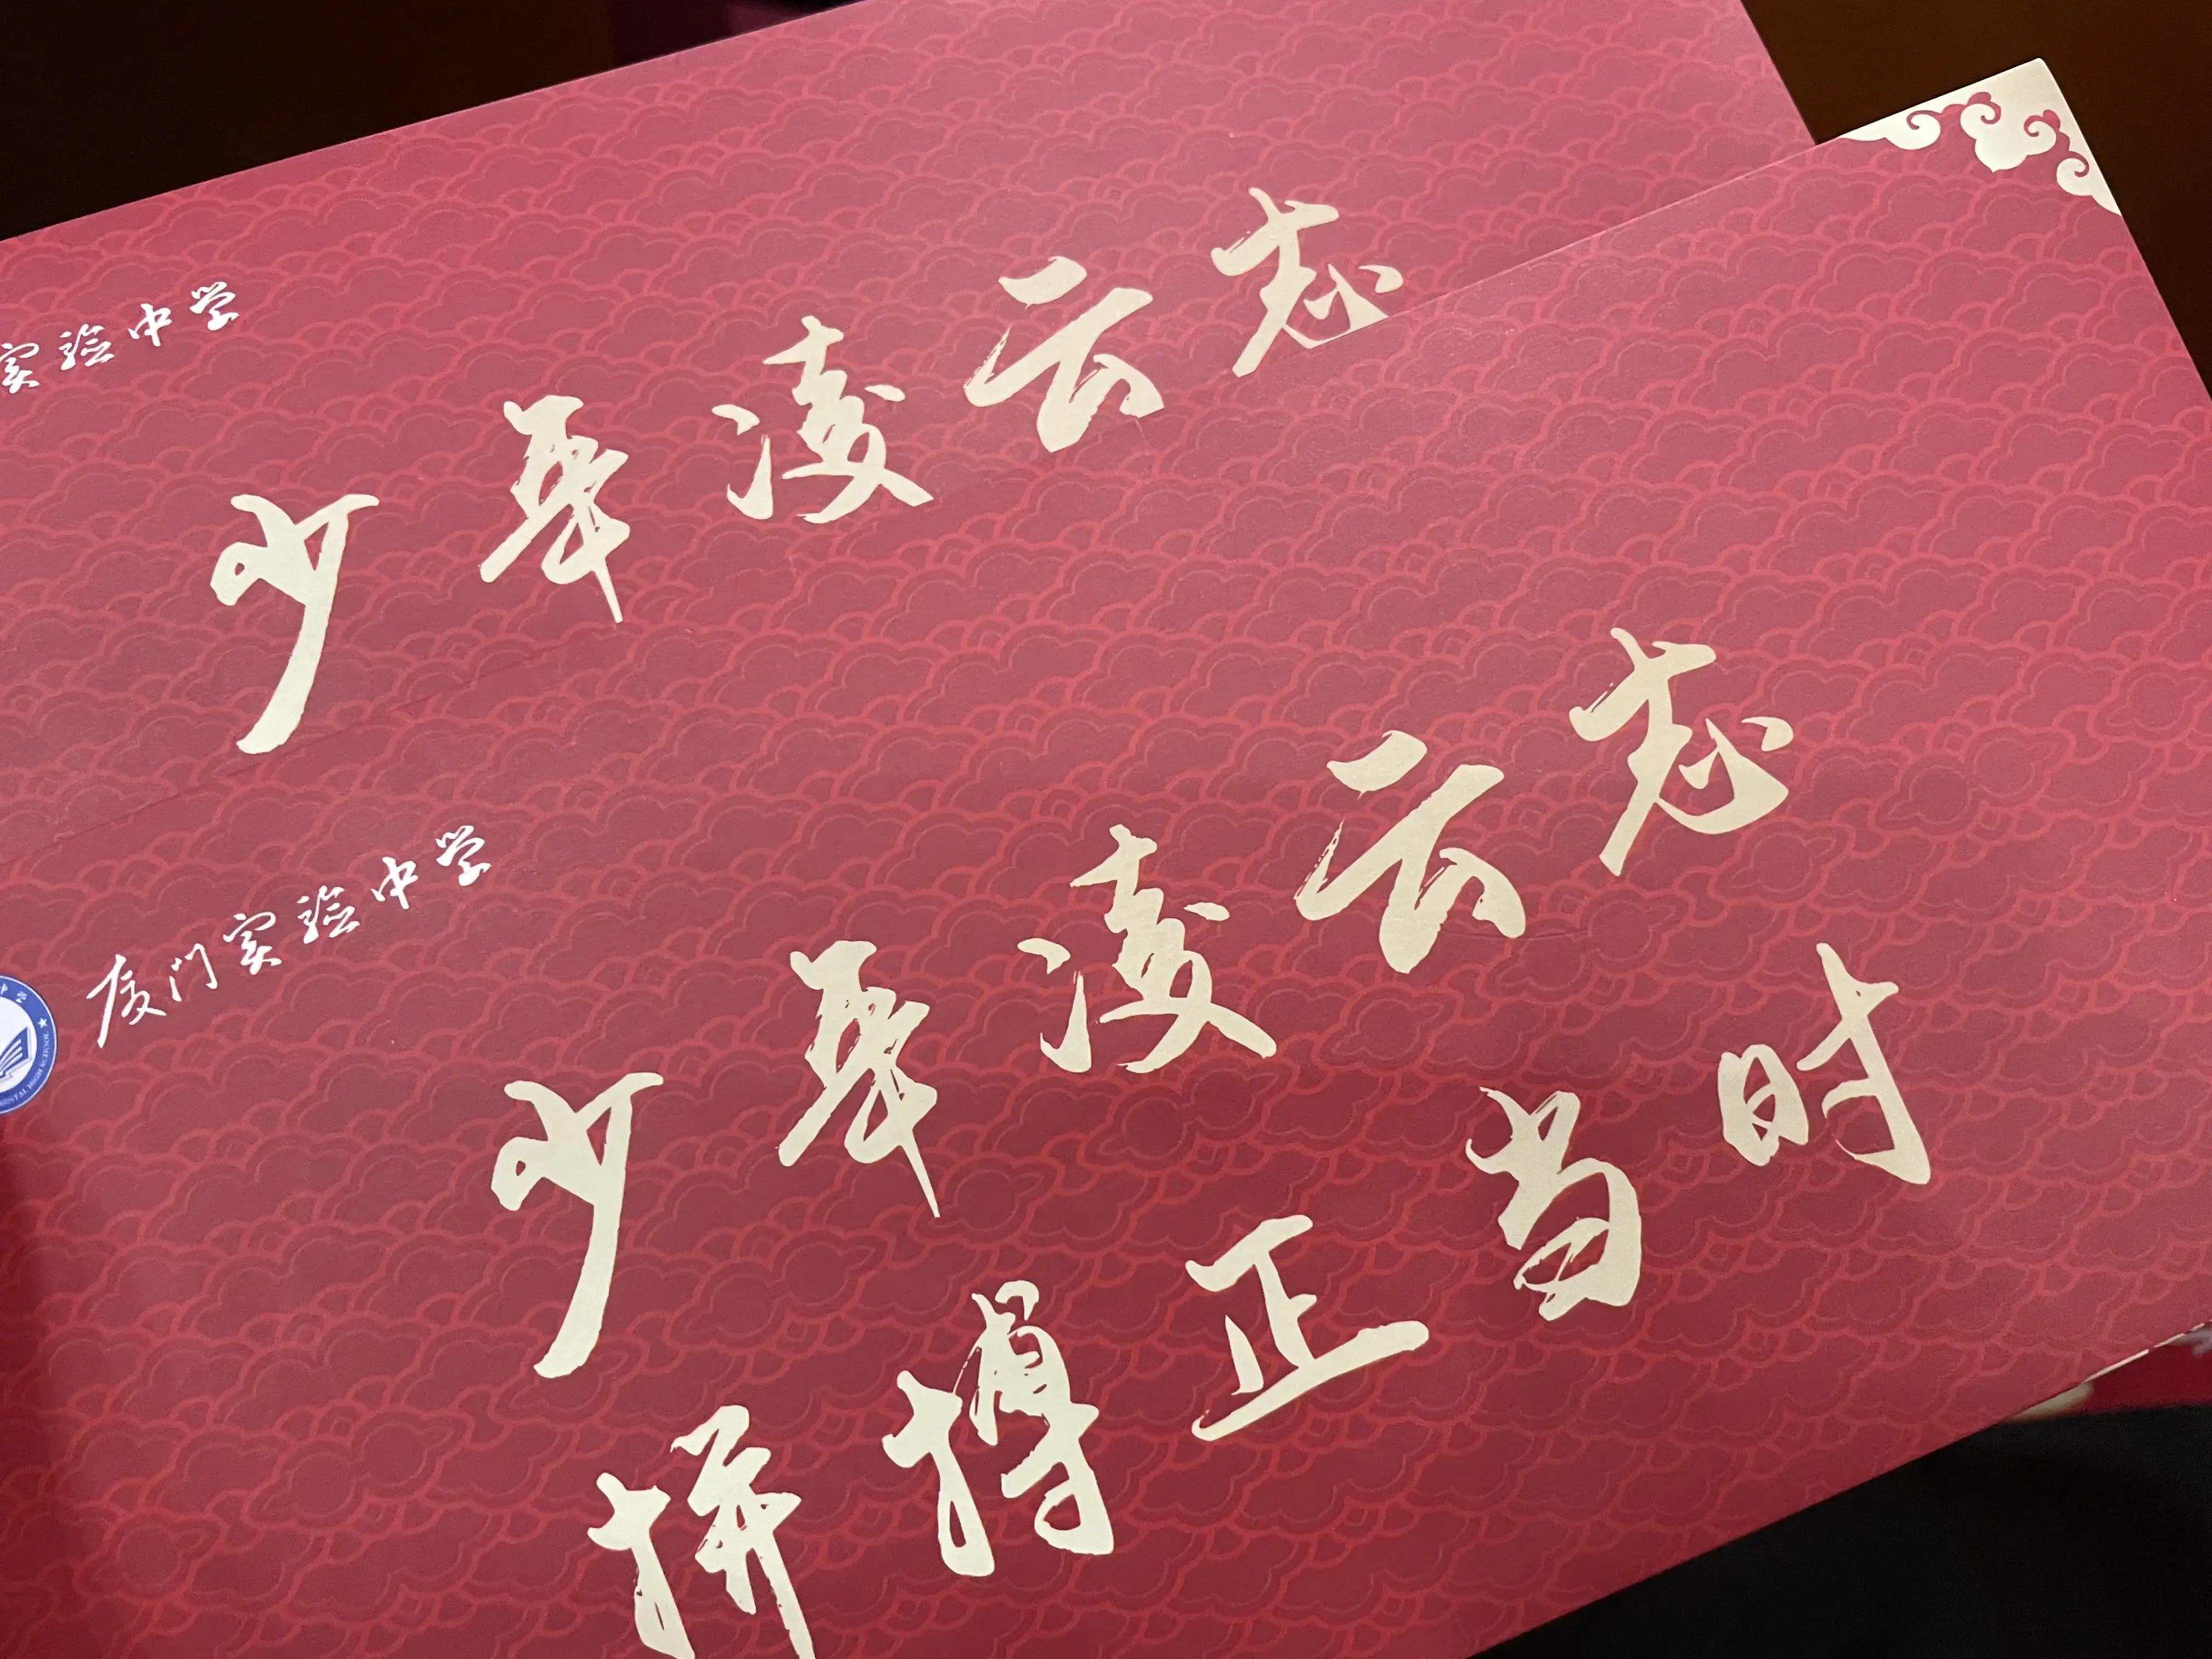 实验中学
少年凌云志
厦门实验中学
少年凌云志
拼搏正当时